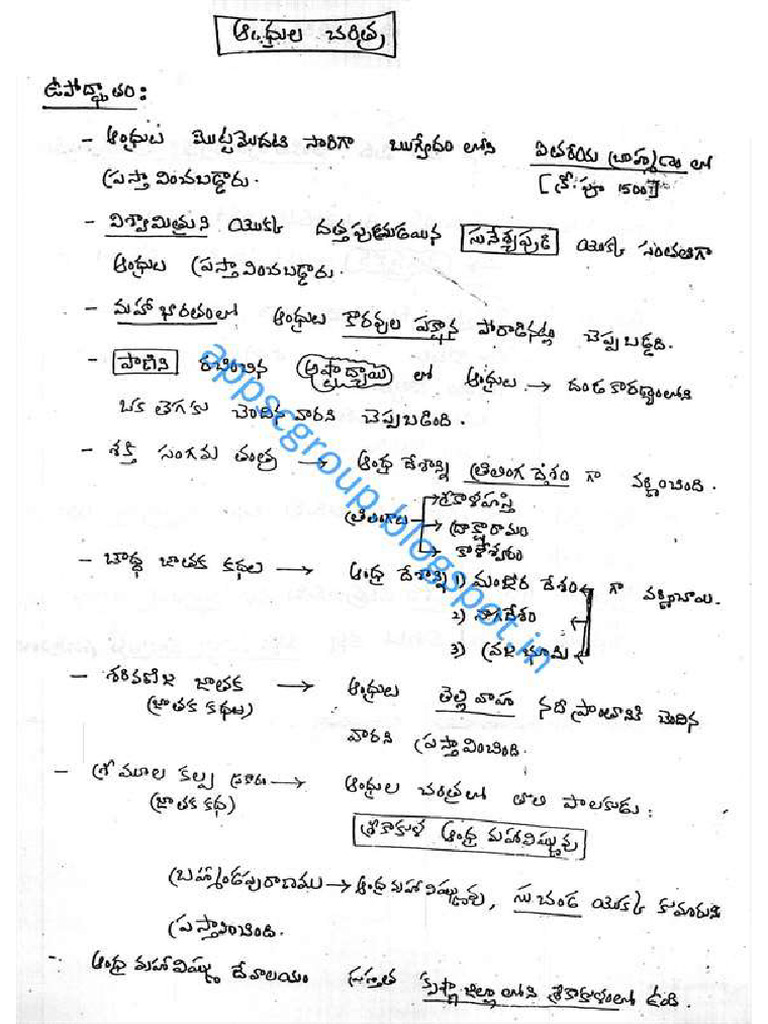 ఆంధ్రుల చరిత్ర
ఉపోద్ఘాతం:
- ఆంధ్రుల మొట్టమొదటి సారిగా ఋగ్వేదంలోని ఐతరేయ బ్రాహ్మణం లో
ప్రస్తావించబడ్డారు. [క్రీ.పూ 1500]
- విశ్వామిత్రుని యొక్క దత్తపుత్రుడయిన సునేశ్యపుడి యొక్క సంతతిగా
ఆంధ్రుల ప్రస్తావించబడ్డారు.
- మహాభారతంలో ఆంధ్రుల కౌరవుల పక్షాన పోరాడినట్లు చెప్పబడ్డది.
- పాణిని రచించిన అష్టాధ్యాయి లో ఆంధ్రుల → దండకారణ్యంలోని
ఒక తెగకు చెందిన వారని చెప్పబడింది.
- శక్తి సంగమ తంత్ర → ఆంధ్ర దేశాన్ని త్రిలింగ దేశం గా వర్ణించింది.
త్రిలింగాలు → శ్రీకాళహస్తి
→ ద్రాక్షారామం
→ కాళేశ్వరం
- బౌద్ధ జాతక కథలు → ఆంధ్ర దేశాన్ని 1) మంజీర దేశం గా వర్ణించాయి.
2) నాగదేశం
3) వజ్రభూమి
- శేరివణిజ జాతక → ఆంధ్రుల తెల్లివాహ నదీ ప్రాంతానికి చెందిన
(జాతక కథలు) వారని ప్రస్తావించింది.
- శ్రీమూల కల్ప → ఆంధ్రుల చరిత్రలో తొలి పాలకుడు:
(జాతక కథ) శ్రీకాకుళ ఆంధ్ర మహావిష్ణువు
బ్రహ్మాండపురాణము → ఆంధ్రమహావిష్ణువు, సుచండ యొక్క కుమారుడని
ప్రస్తావించింది.
- ఆంధ్ర మహావిష్ణు దేవాలయం ప్రస్తుత కృష్ణాజిల్లాలోని శ్రీకాకుళంలో ఉంది.
appscgroup.blogspot.in